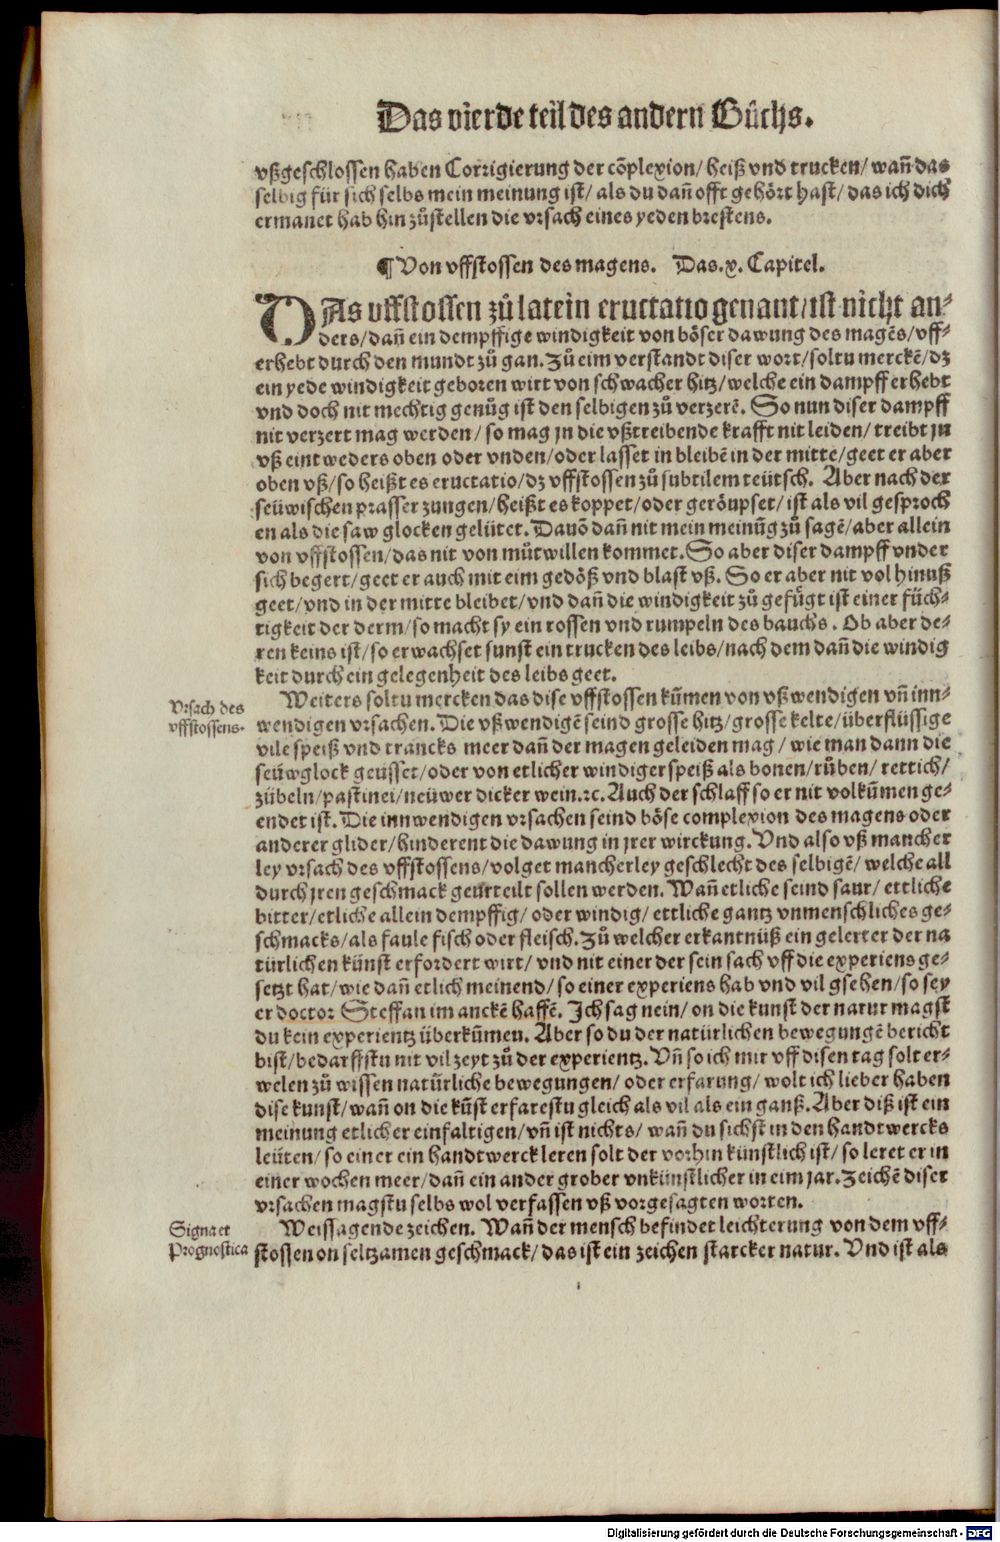 Das vierde teil des andern Bůchs.
vßgeschlossen haben Corrigierung der cōplexion/ heiß vnd trucken/ wañ das
selbig für sich selbs mein meinung ist/ als du dañ offt gehört hast/ das ich dich
ermanet hab hin zůstellen die vrsach eines yeden brestens.
¶ Von vffstossen des magens. Das .x. Capitel.
DAs vffstossen zů latein eructatio genant/ ist nicht an⸗
ders/ dañ ein dempffige windigkeit von böser dawung des magēs/ vff⸗
erhebt durch den mundt zů gan. Zů eim verstandt diser wort/ soltu merckē/ dz
ein yede windigkeit geboren wirt von schwacher hitz/ welche ein dampff erhebt
vnd doch nit mechtig genůg ist den selbigen zů verzerē. So nun diser dampff
nit verzert mag werden/ so mag jn die vßtreibende krafft nit leiden/ treibt jn
vß eintweders oben oder vnden/ oder lasset in bleibē in der mitte/ geet er aber
oben vß/ so heißt es eructatio/ dz vffstossen zů subtilem teütsch. Aber nach der
seüwischen prasser zungen/ heißt es koppet/ oder geröupset/ ist als vil gesproch
en als die saw glocken gelütet. Dauō dañ nit mein meinūg zů sagē/ aber allein
von vffstossen/ das nit von můtwillen kommet. So aber diser dampff vnder
sich begert/ geet er auch mit eim gedöß vnd blast vß. So er aber nit vol hinuß
geet/ vnd in der mitte bleibet/ vnd dañ die windigkeit zů gefügt ist einer füch⸗
tigkeit der derm/ so macht sy ein rossen vnd rumpeln des bauchs. Ob aber de⸗
ren keins ist/ so erwachset sunst ein trucken des leibs/ nach dem dañ die windig
keit durch ein gelegenheit des leibs geet.
Vrsach des
vffstossens.
Weiters soltu mercken das dise vffstossen kum̄en von vßwendigen vñ inn⸗
wendigen vrsachen. Die vßwendigē seind grosse hitz/ grosse kelte/ überflüssige
vile speiß vnd trancks meer dañ der magen geleiden mag/ wie man dann die
seüwglock geusset/ oder von etlicher windiger speiß als bonen/ rüben/ rettich/
zübeln/ pastinei/ neüwer dicker wein. ꝛc. Auch der schlaff so er nit volkum̄en ge⸗
endet ist. Die innwendigen vrsachen seind böse complexion des magens oder
anderer glider/ hinderent die dawung in jrer wirckung. Vnd also vß mancher
ley vrsach des vffstossens/ volget mancherley geschlecht des selbigē/ welche all
durch jren geschmack geurteilt sollen werden. Wañ etliche seind saur/ ettliche
bitter/ etliche allein dempffig/ oder windig/ ettliche gantz vnmenschliches ge⸗
schmacks/ als faule fisch oder fleisch. Zů welcher erkantnüß ein gelerter der na
türlichen künst erfordert wirt/ vnd nit einer der sein sach vff die experiens ge⸗
setzt hat/ wie dañ etlich meinend/ so einer experiens hab vnd vil gsehen/ so sey
er doctor Steffan im anckē haffē. Ich sag nein/ on die kunst der natur magst
du kein experientz überkum̄en. Aber so du der natürlichen bewegungē bericht
bist/ bedarffstu nit vil zeyt zů der experientz. Vñ so ich mir vff disen tag solt er⸗
welen zů wissen natürliche bewegungen/ oder erfarung/ wolt ich lieber haben
dise kunst/ wañ on die kūst erfarestu gleich als vil als ein ganß. Aber diß ist ein
meinung etlicher einfaltigen/ vñ ist nichts/ wañ du sichst in den handtwercks
leüten/ so einer ein handtwerck leren solt der vorhin künstlich ist/ so leret er in
einer wochen meer/ dañ ein ander grober vnkünstlicher in eim jar. Zeichē diser
vrsachen magstu selbs wol verfassen vß vorgesagten worten.
Signa et
Prognostica
Weissagende zeichen. Wañ der mensch befindet leichterung von dem vff⸗
stossen on seltzamen geschmack/ das ist ein zeichen starcker natur. Vnd ist als
Digitalisierung gefördert durch die Deutsche Forschungsgemeinschaft - DFG